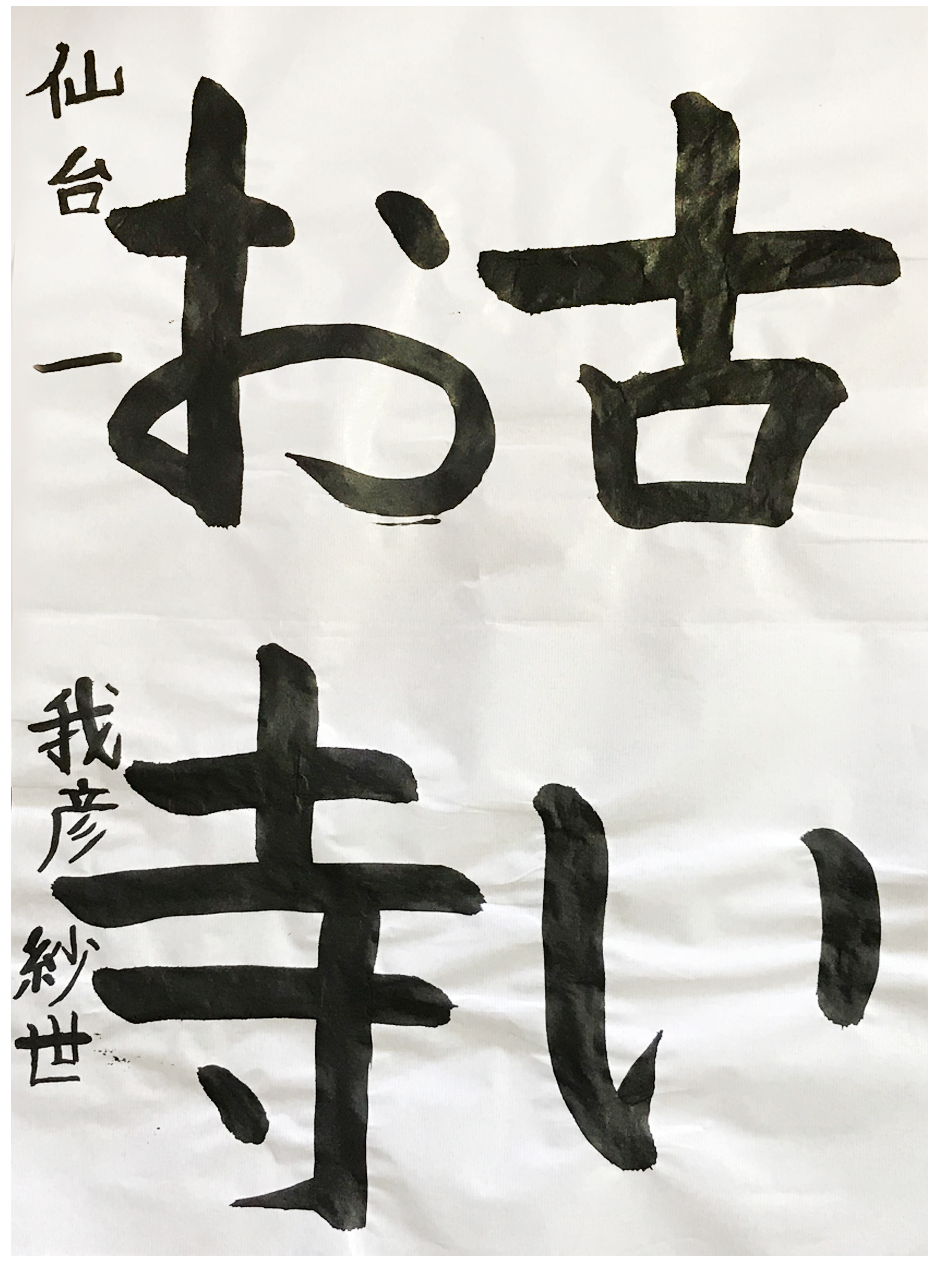 古い
お寺
仙台一 我彦紗世